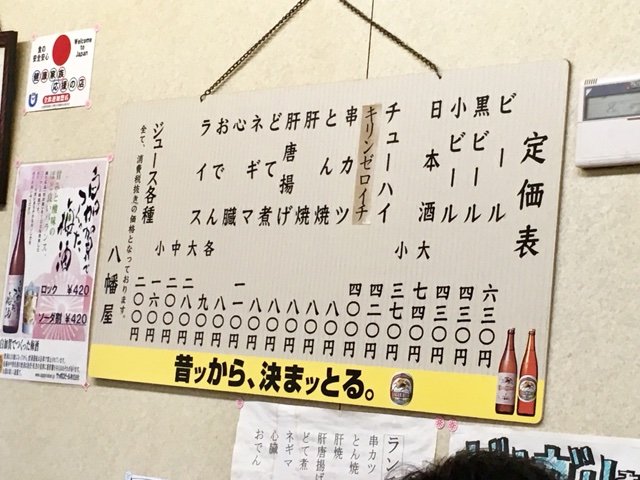 定価表
ビール 六三〇円
黒ビール 四三〇円
小ビール 四三〇円
日本酒 大 七四〇円
小 三七〇円
チューハイ 四二〇円
キリンゼロイチ 四〇〇円
串カツ 八〇円
とん焼 八〇円
肝焼 八〇円
肝唐揚げ 八〇円
どて煮 八〇円
ネギマ
心臓
おでん 各 九〇円
ライス 大
中
小 一六〇円
ジュース各種 二〇〇円
全て、消費税抜きの価格となっております。
八幡屋
昔ッから、決まッとる。
食の
安全安心
Welcome to Japan
健康家族
応援の店
ロック ¥420
ソーダ割 ¥420
白加賀でつくった梅酒
串カツ
とん焼
肝焼
肝唐揚げ
どて煮
ネギマ
心臓
おでん